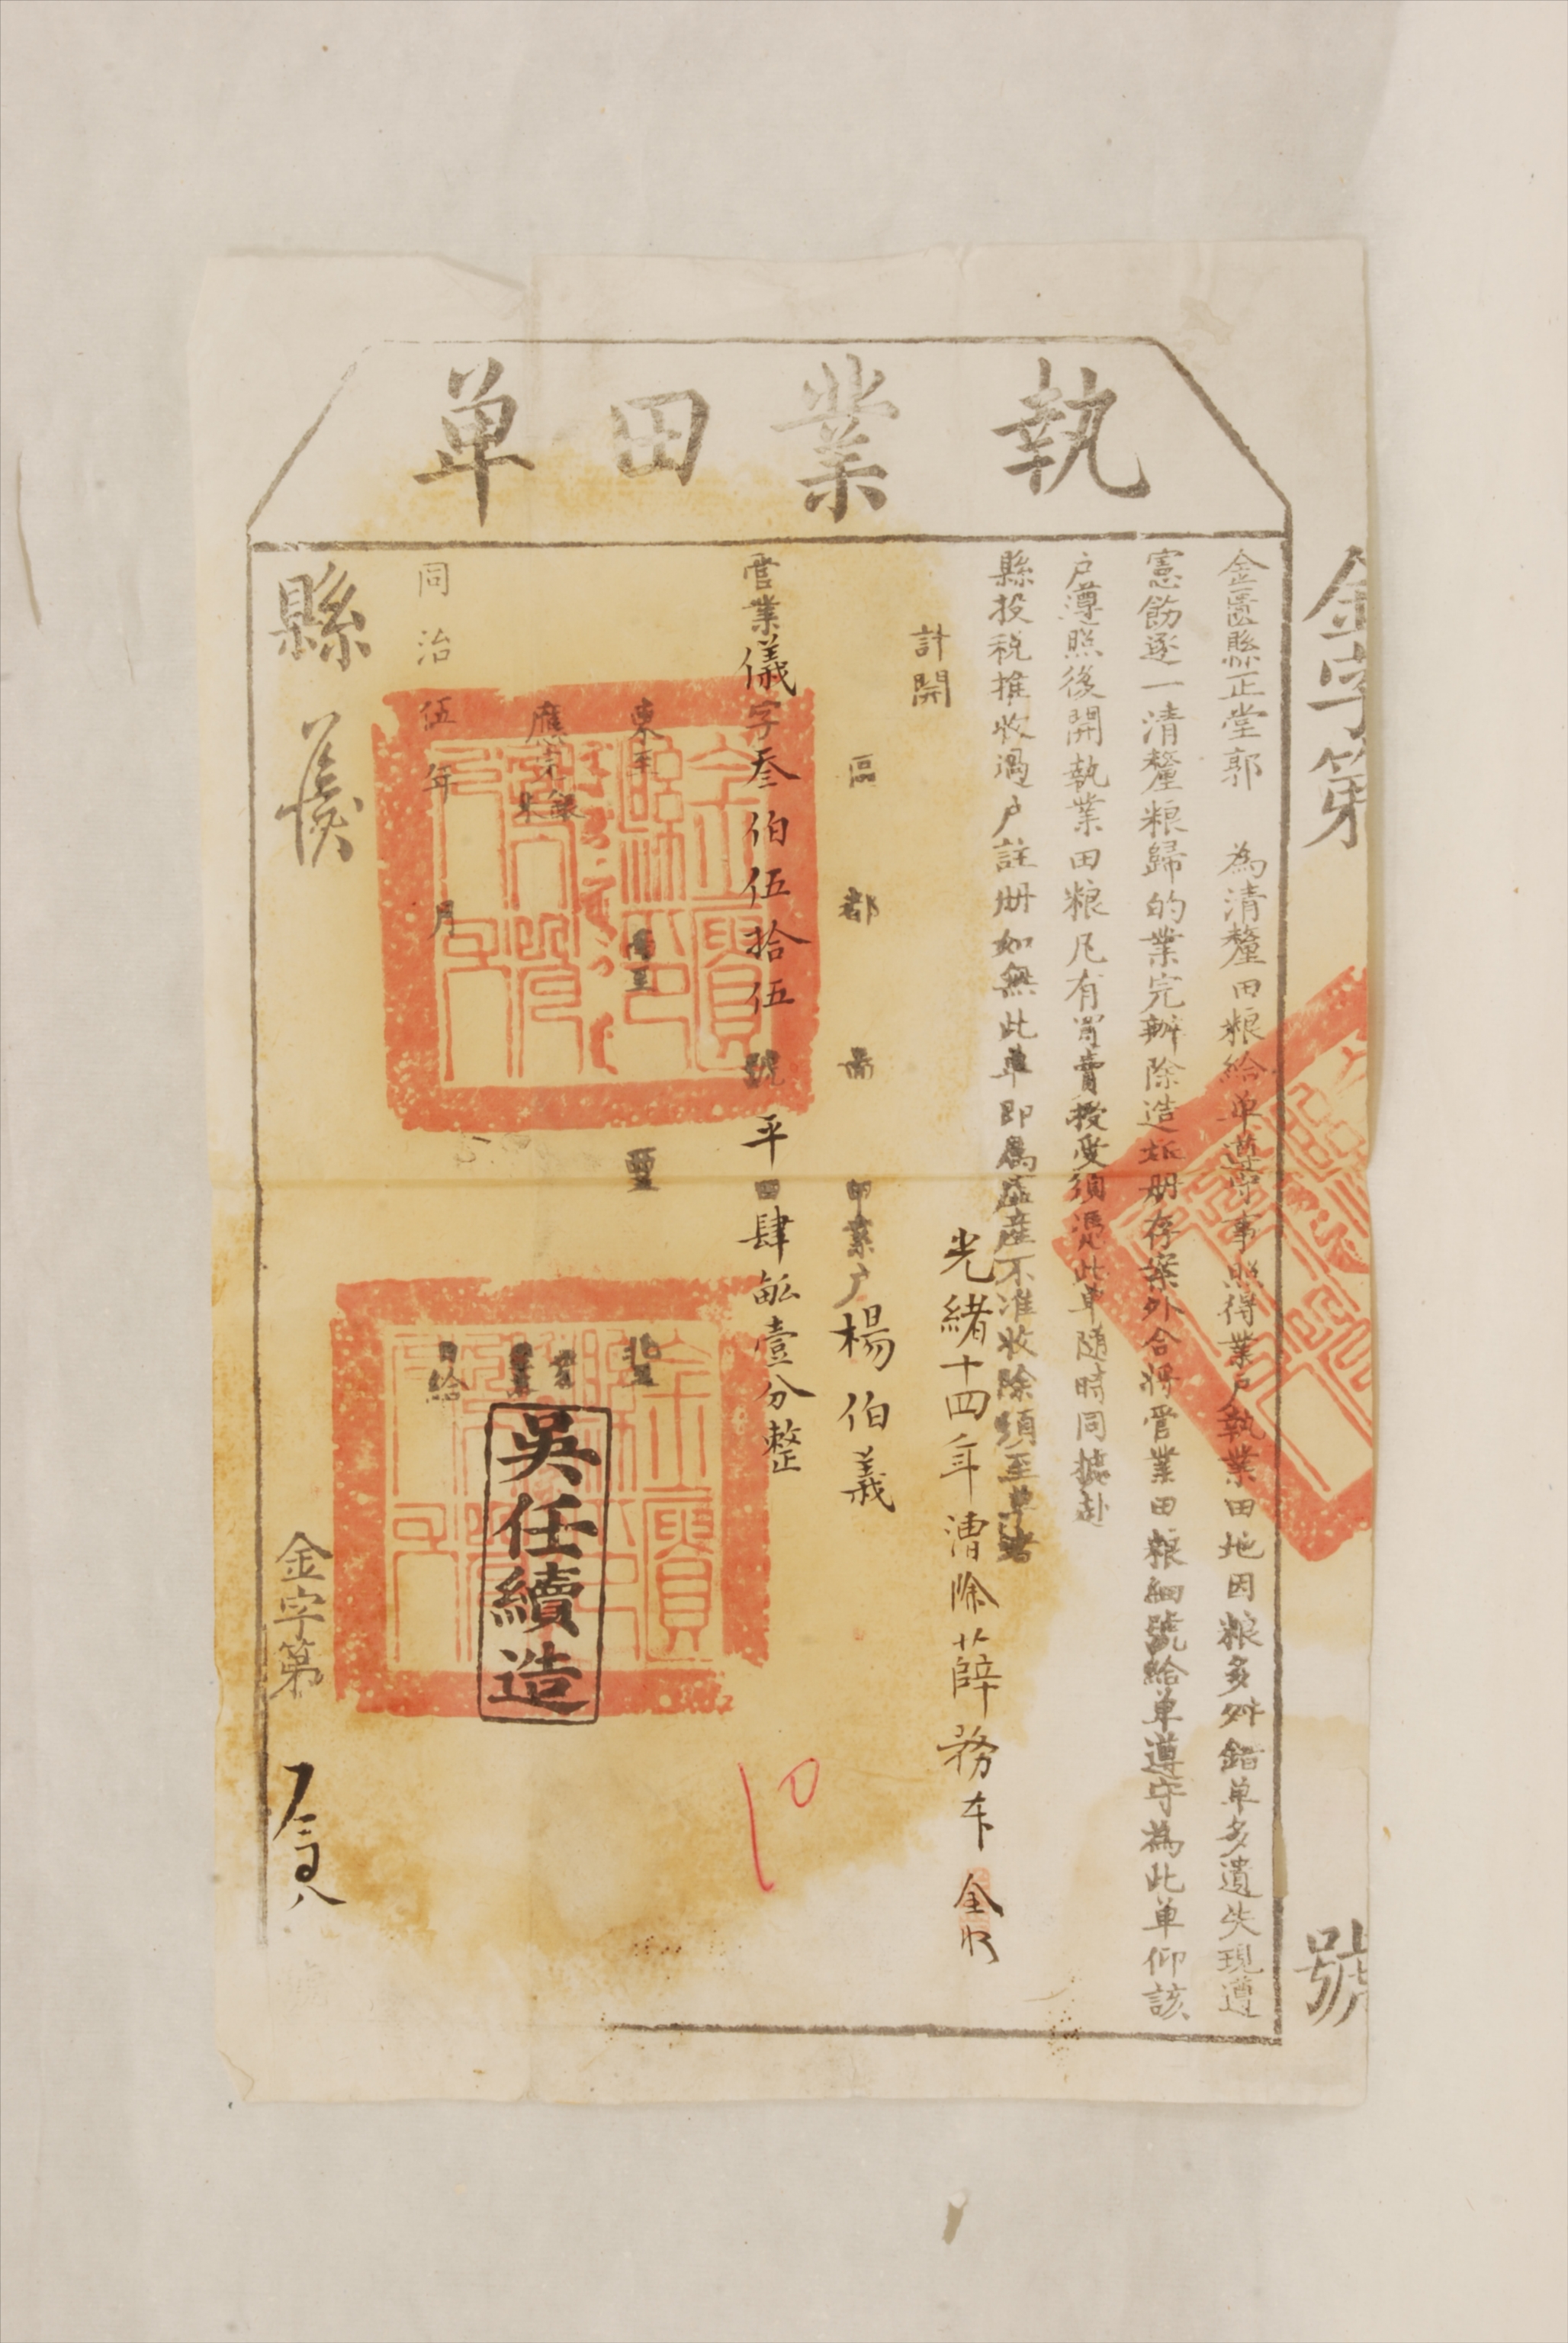 執業田單
金字第　號
金匱縣正堂郭　為清釐田粮給单遵守事照得業戶執業田地因粮多舛錯单多遺失現遵
憲飭逐一清釐粮歸的業完辦除造坵冊存案外合將管業田粮細號給单遵守為此单仰該
戶遵照後開執業田粮凡有買賣授受須憑此单随時同據赴
縣投税推收過户註册如無此单即為盗産不准收除須至单者
光緒十四年漕除薛務本
全收
計開
區　都　啚　甲業户楊伯義
管業儀字叁伯伍拾伍號平田肆畝壹分整
東至　南至　西至　北至
應完銀米
吳任續造
同治伍年　月　日給
縣
金字第